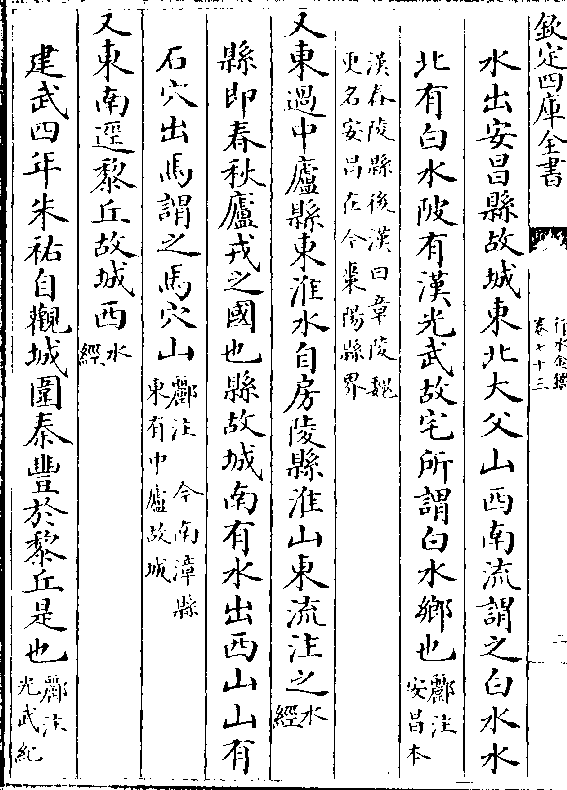 欽定四庫全書
行水金鑑
卷七十三
二
水出安昌縣故城東北大父山西南流謂之白水水
北有白水陂有漢光武故宅所謂白水鄉也酈注安昌本
漢舂陵縣後漢曰章陵魏更名安昌在今棗陽縣界
又東過中廬縣東淮水自房陵縣淮山東流注之水經
縣即春秋廬戎之國也縣故城南有水出西山山有
石穴出馬謂之馬穴山酈注今南漳縣東有中廬故城
又東南逕黎丘故城西水經
建武四年朱祐自觀城圍秦豐於黎丘是也酈注光武紀